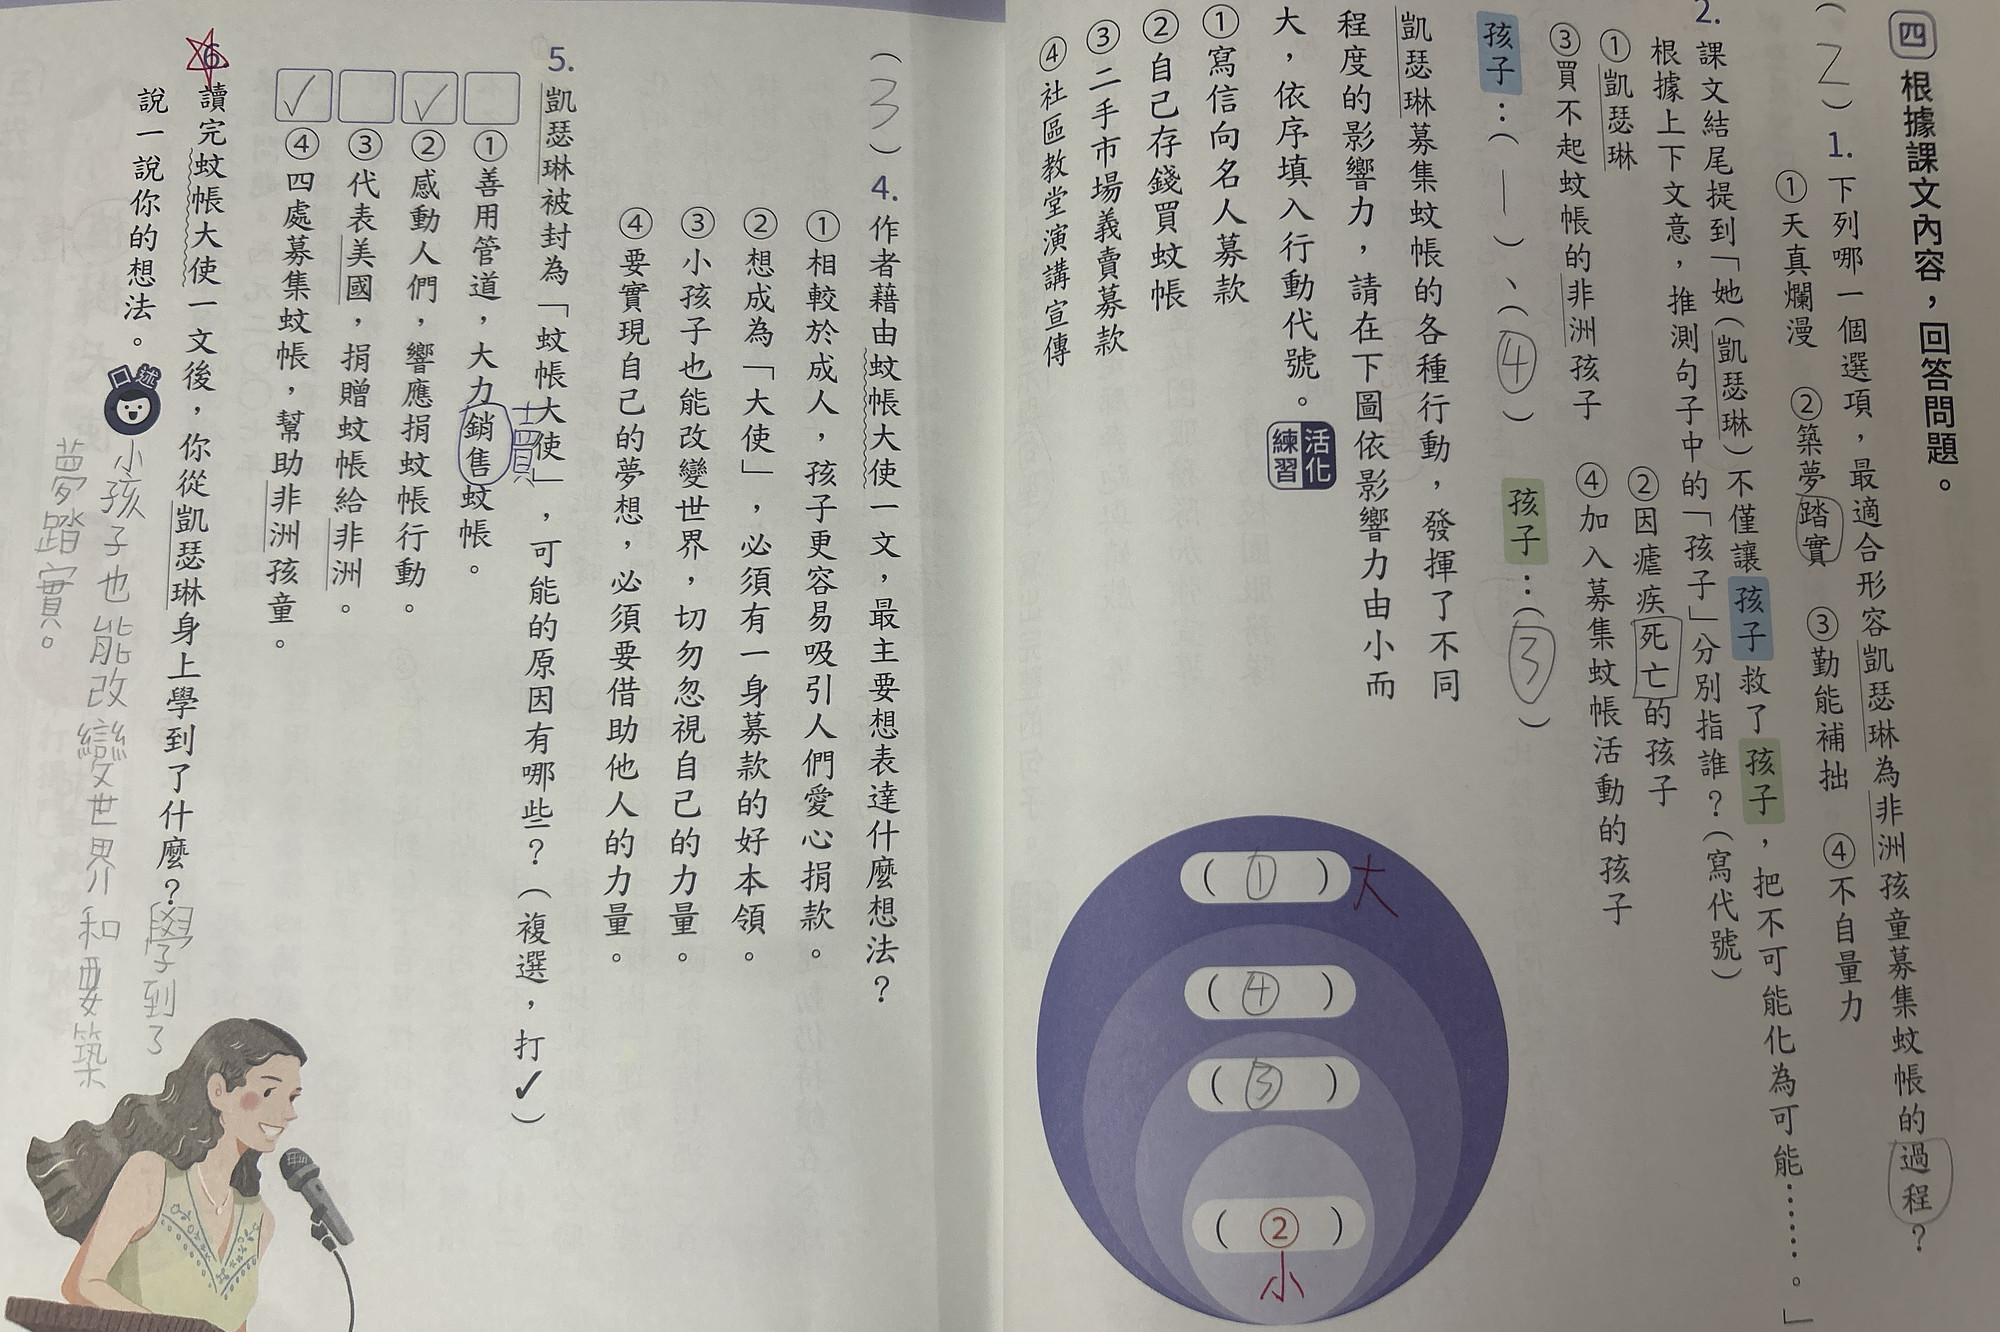 四 根據課文內容，回答問題。
( 2 ) 1. 下列哪一個選項，最適合形容凱瑟琳為非洲孩童募集蚊帳的過程？
①天真爛漫 ②築夢踏實 ③勤能補拙 ④不自量力
2. 課文結尾提到「她(凱瑟琳)不僅讓孩子救了孩子，把不可能化為可能……。」
根據上下文意，推測句子中的「孩子」分別指誰？(寫代號)
①凱瑟琳 ②因瘧疾死亡的孩子
③買不起蚊帳的非洲孩子 ④加入募集蚊帳活動的孩子
孩子：( 一 )、( ④ ) 孩子：( ③ )
凱瑟琳募集蚊帳的各種行動，發揮了不同
程度的影響力，請在下圖依影響力由小而
大，依序填入行動代號。 活化練習
①寫信向名人募款
②自己存錢買蚊帳
③二手市場義賣募款
④社區教堂演講宣傳
( ① ) 大
( ④ )
( ③ )
( ② )
小
( 3 ) 4. 作者藉由蚊帳大使一文，最主要想表達什麼想法？
①相較於成人，孩子更容易吸引人們愛心捐款。
②想成為「大使」，必須有一身募款的好本領。
③小孩子也能改變世界，切勿忽視自己的力量。
④要實現自己的夢想，必須要借助他人的力量。
5. 凱瑟琳被封為「蚊帳大使」，可能的原因有哪些？(複選，打✓)
①善用管道，大力銷售蚊帳。
賣
✓ ②感動人們，響應捐蚊帳行動。
③代表美國，捐贈蚊帳給非洲。
✓ ④四處募集蚊帳，幫助非洲孩童。
6. 讀完蚊帳大使一文後，你從凱瑟琳身上學到了什麼？學到了
說一說你的想法。 口述 小孩子也能改變世界和要築
夢踏實。